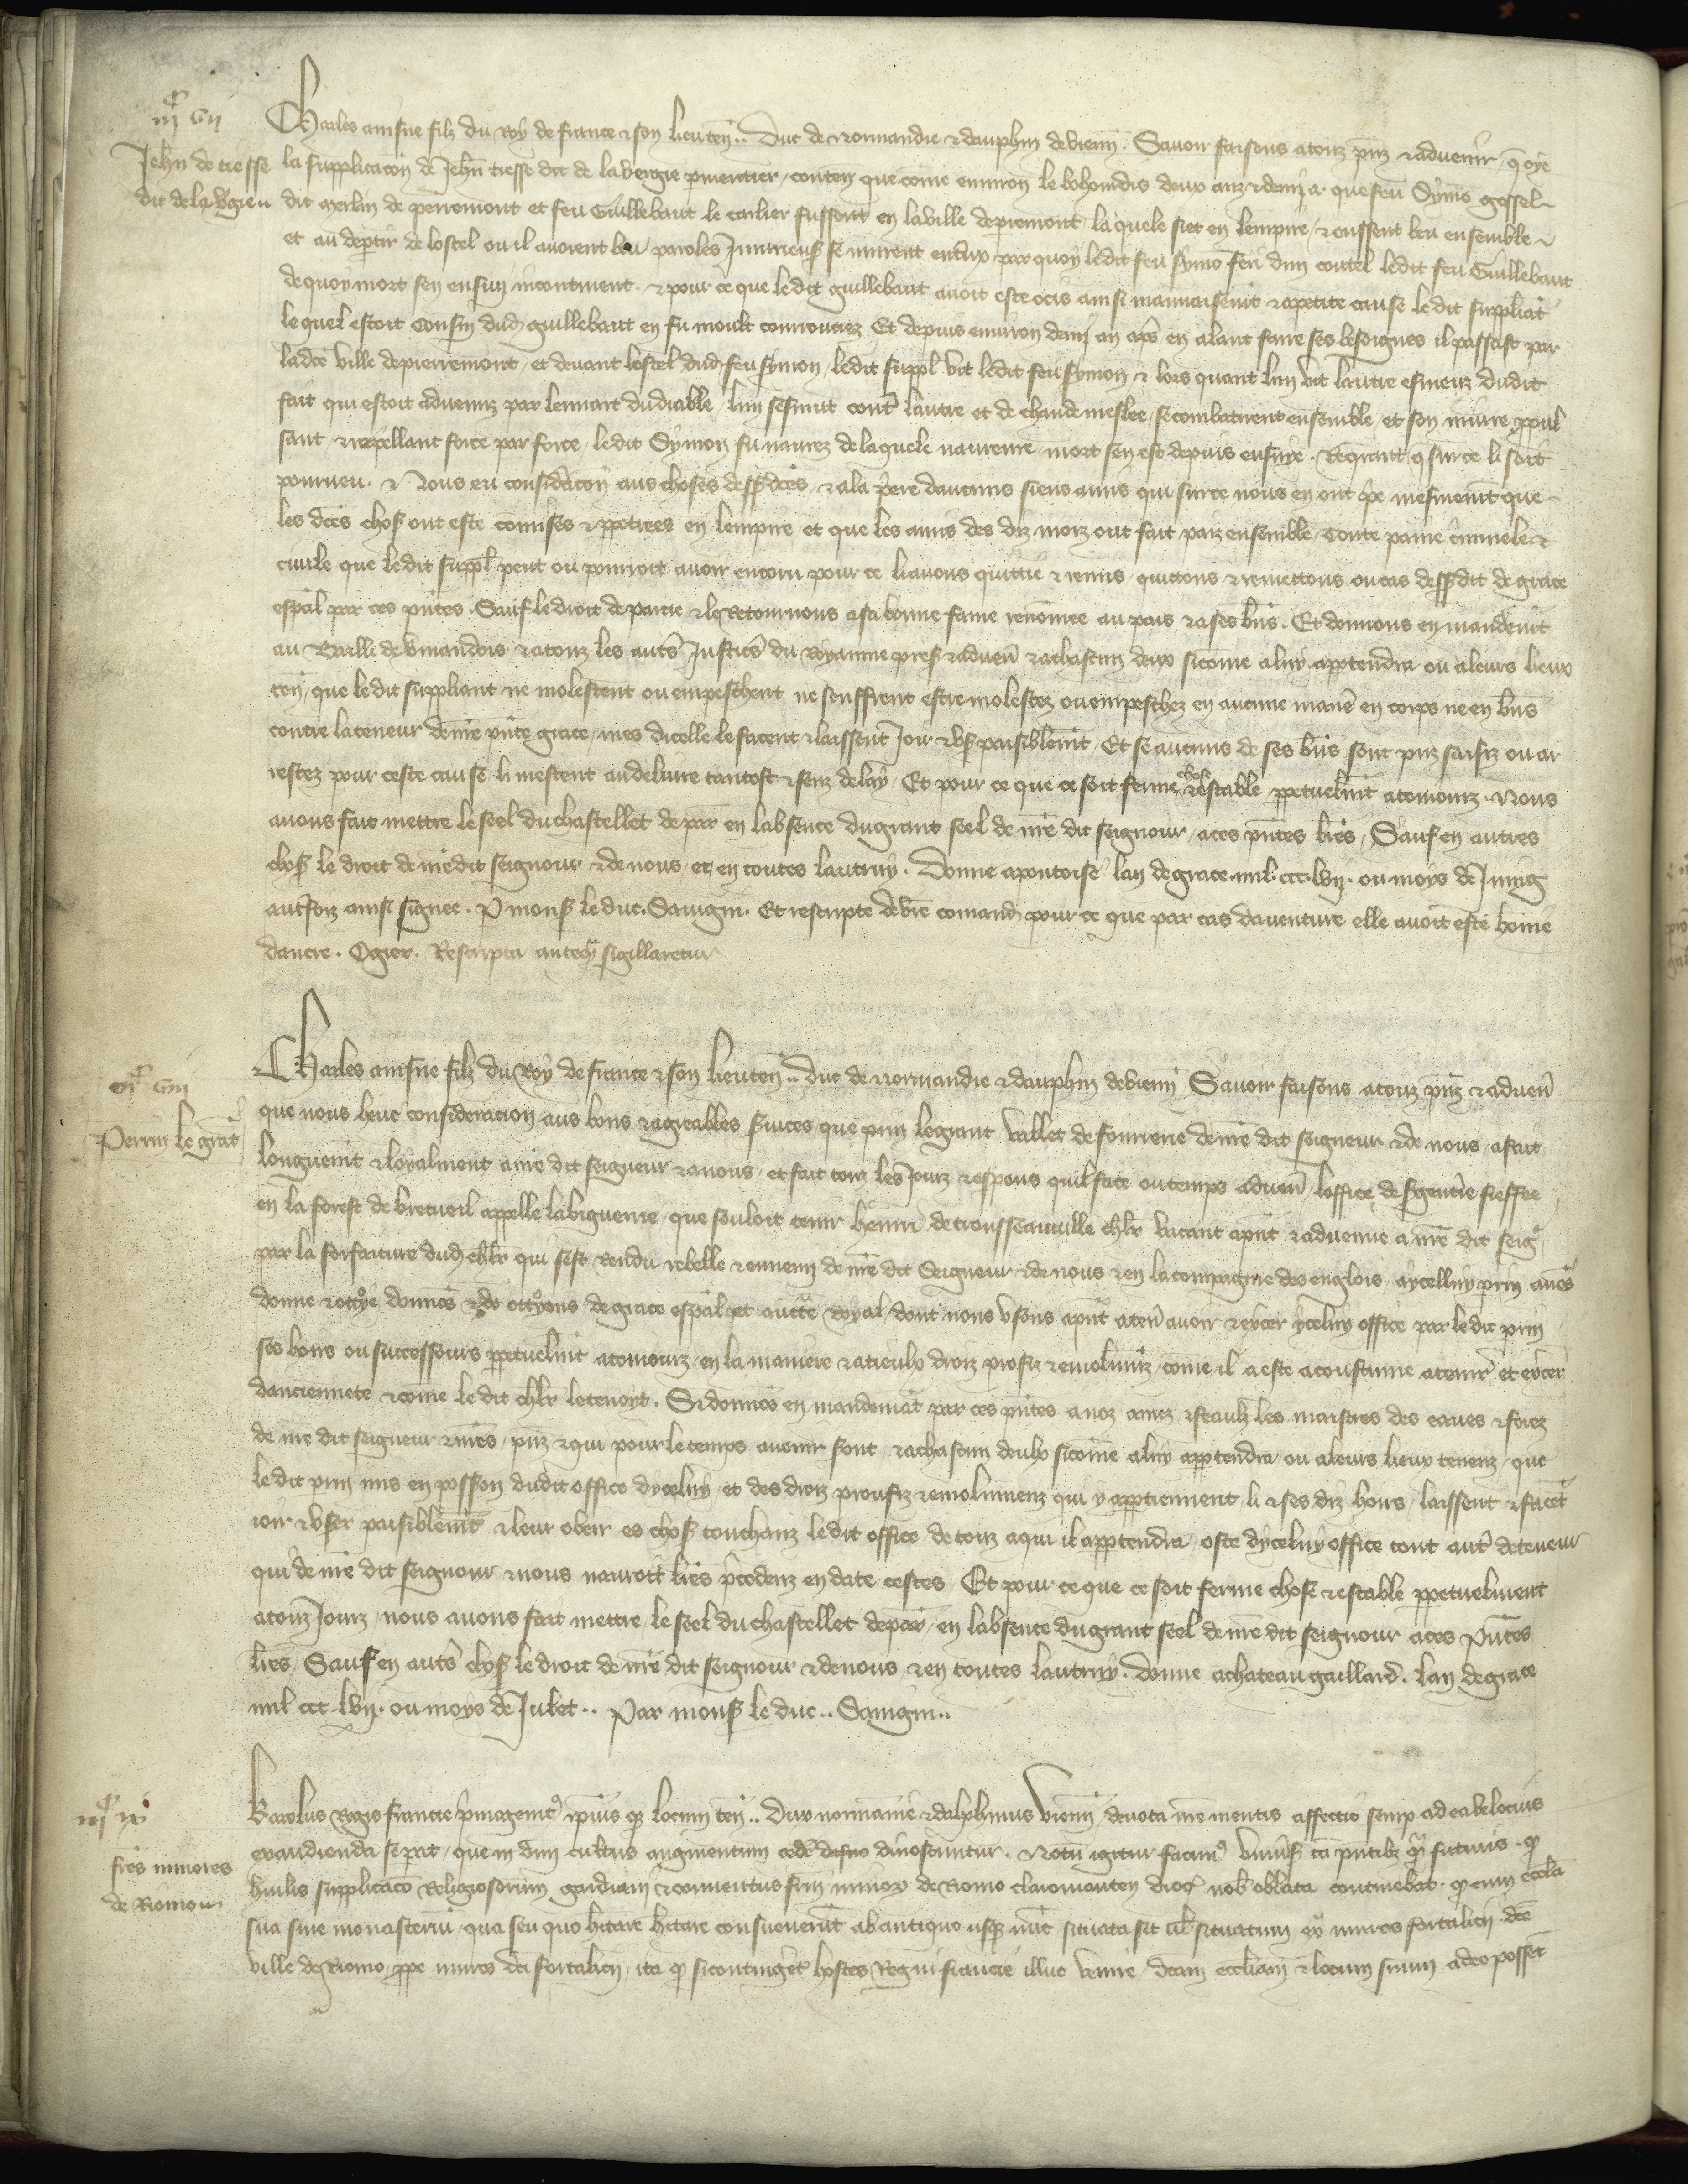 iijᶜ vij
Jehñ de tresse
dit de la Vgieu
Charles ainsne filz du Roy de france & son lieuteñ.. Duc de Normandie & dauphin de vienñ. Savoir faisons a touz p̃nz & advenir q̃ oye
la supplicacõn de Jehñ tresse dit de la vergie conteñ que cõme environ le bohourdis deux anz & demi a que feu Symõ gossel
dit merlin de perremont et feu Guillebaut le carlier fussent en la ville de premont la quele siet en lempire & eussent beu ensemble
et au deptir de lostel ou il avoient beu paroles Iniurieus̃ se murent entr̃ux par quoy ledit feu Symõ feri dun coutel ledit feu Guillebaut
de quoy mort sen ensuy incontinent. & pour ce que ledit guillebaut avoit este ocis ainsi mauvaisem̃t & a petite cause ledit suppliãt
le quel estoit Cousin dud guillebaut en fu moult courrouciez Et depuis environ demi an apr̃s en alant faire ses besoignes il passast par
ladc̃e ville de pierremont et devant lostel dud feu symon ledit suppl̃ vit ledit feu Symon & lors quant lun vit lautre esmeuz dudit
fait qui estoit advenuz par lennort du diable lun sesmut contr̃ lautre et de chaude meslee se combatirent ensemble et son iniure ppul
sant & repellant force par force ledit Symon fu navrez de laquele navreure mort sen est depuis ensuye. Req̃rant q̃ sur ce li soit
pourveu. & Nous eu considr̃acõn aus choses dess̃dc̃es & a la p̃ere daucuns siens amis qui sur ce nous en ont p̃e mesmem̃t que
les dc̃es chos̃ ont este cõmises & ppetrees en lempire et que les amis des diz morz ont fait paiz ensemble toute paine c̃minele &
civile que ledit suppl̃ peut ou pourroit avoir encoru pour ce li avons quittie & remis quittons & remettons ou cas dess̃dit de grace
esp̃al par ces p̃ntes. Sauf le droit de partie & le Retournons a sa bonne fame renõmee au pais & a ses bñs. Et donnons en mandem̃t
au Bailli de v̈mandois & a touz les autr̃s Justic̃s du Royaume p̃s̃ & advenr̃ & a chascun deux sicõme a luy apptendra ou a leurs lieux
teñ que ledit suppliant ne molestent ou empeschent ne seuffrent estre molestez ou empeschez en aucune manr̃e en corps ne en bñs
contre la teneur de nr̃e p̃nte grace mes dicelle le facent & laissent Joir & us̃ paisiblem̃t Et se aucuns de ses bñs sont pris saisiz ou ar
restez pour ceste cause li mettent au delivre tantost & senz delay Et pour ce que ce soit ferme chose & estable ppetuelm̃t a tousiourz. Nous
avons fait mettre le seel du chastellet de par̃ en labsence du grant seel de nr̃e dit seignour a ces p̃ntes lr̃es Sauf en autres
chos̃ le droit de nr̃edit seignour & de nous et en toutes lautruy. Donne a pontoise lan de grace mil. ccc. lvij. ou moys de Juing
autrfoiz ainsi signee. P mons̃ le duc. Savigni. Et rescripte de vr̃e comand̃ pour ce que par cas daventure elle avoit este
dancre. Ogier. Rescripta anteq̃ sigillaretur
iijᶜ viij
Perrin le grãt
Charles ainsne filz du Roy de france & son lieuteñ.. duc de Normandie & dauphin de vienñ Savoir faisons a touz p̃nz & advenr̃
que nous heue consideracion aus bons & agreables s̃vices que prin le grant vallet de fourriere de nr̃e dit seigneur & de nous a fait
longuem̃t & loyalment a nr̃e dit seigneur & a nous et fait touz les Jourz & espons quil face ou temps advenr̃ loffice de s̃genter̃ie fieffee
en la forest de bretueil appelle la bigueue que souloit tenir henri de trousseauville ch̃lr vacant a p̃nt & advenue a nr̃e dit seig̃
par la forfaiture dud ch̃lr qui sest Rendu rebelle & ennemi de nr̃e dit Seigneur & de nous & en la compagnie des englois a ycelluy prin avõs
donne & ottroye donnõs & ottroyons de grace esp̃al et auctẽ Royal dont nous usons a p̃nt a tenir̃ avoir & exc̃er yceluy office par ledit prin
ses hoirs ou successours ppetuelm̃t a tousiourz en la maniere & a tieulx droiz profiz & emolum̃z cõme il a este acoustume a tenir et exc̃er
danciennete & cõme ledit ch̃lr le tenoyt. Si donnõs en mandemẽt par ces p̃ntes a noz amez & feaulx les maistres des eaues & forez
de nr̃e dit seigneur & nr̃es p̃nz & qui pour le temps avenir sont & a chascun deulx sicõme a luy apptendra ou a leurs lieux tenenz que
ledit prin mis en possõn dudit office dyceluy et des droiz proufiz & emolumenz qui y apptiennent li & ses diz hoirs laissent & facẽt
ioir & user paisiblem̃t & leur obeir es chos̃ touchanz ledit office de touz a qui il apptendra oste dyceluy office tout autr̃ deteneur
qui de nr̃e dit seignour & nous nauroit lr̃es p̃cedenz en date cestes Et pour ce que ce soit ferme chose & estable ppetuelment
a touz Jourz nous avons fait mettre le seel du chastellet de par̃ en labsence du grant seel de nr̃e dit seignour a ces p̃ntes
lr̃es Sauf en autr̃s chos̃ le droit de nr̃e dit seignour & de nous & en toutes lautruy. Donne a chateau gaillard. lan de grace
mil ccc. lvij. ou moys de Julet.. Par mons̃ le duc.. Savigni..
iijᶜ ix
fr̃es minores
de Riomo
Karolus Regis francie p̃mogenit9 ip̃ius q3 locum teñ.. Dux normañie & dalphinus vienñ devota nr̃e mentis affectio semp ad ea belocius
exaudienda se pat que in divini cultus augmentum cedr̃e dinoscuntur. Notũ igitur facim9 univ̈s̃ tã p̃ntib3 q̃ futuris. q̃
humilis supplicacõ Religiosorum gardiani & conventus fr̃m minor̃ de Riomo claromonteñ dioc̃ nob̃ oblata continebat. q̃ cum eccl̃ia
sua sive monasteriũ qua seu quo hitare consueverũt ab antiquo usq3 nũc situata sit ul̃ situatum ex̃ muros fortalicii dc̃e
ville de Riomo ppe muros dc̃i fortalicii ita q̃ si contingẽt hostes Regni francie illuc venire dc̃am eccl̃iam & locum suum adeo possẽt